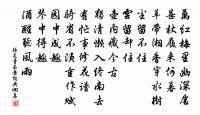 萬紅梅里幽深處
甚杖履來何暮
草木湘香穿水樹
塵留不住
雲留卻住
壺內藏今古
獨清懶入終南去
有忙事修花譜
騎省不須重作賦
園中成趣
琴中得趣
酒醒聽風雨